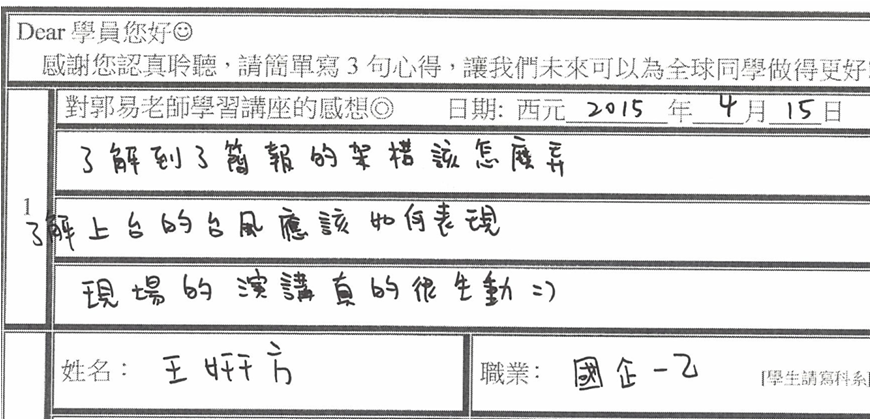 Dear 學員您好☺
感謝您認真聆聽，請簡單寫 3 句心得，讓我們未來可以為全球同學做得更好!
對郭易老師學習講座的感想◎ 日期: 西元 2015 年 4 月 15 日
了解到了簡報的架構該怎麼弄
1
了解上台的台風應該如何表現
現場的演講真的很生動 =)
姓名： 王 方 職業： 國企一乙 [學生請寫科系]